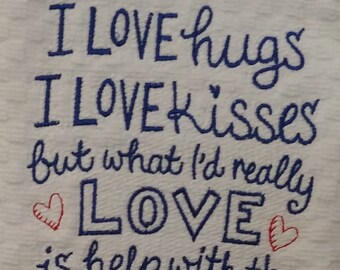 I LOVE hugs
I LOVE kisses
but what I'd really
LOVE
is help with the